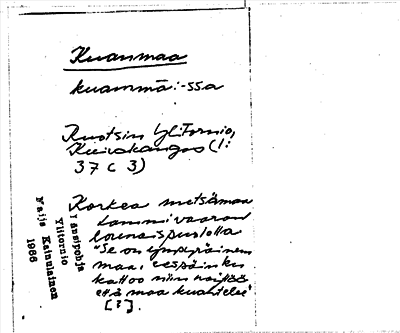 Kuanmaa
kuanmā: -ssa
Ruotsin Ylitornio,
Kuivakangas (1:
37 C 3)
Korkea metsämaa
Lammivaaran
lounaispuolella
"Se on ympyräinen
maa, eespäin ku
kattoo niin näyttää
että maa kuantelee"
[?].
Länsipohja
Ylitornio
Maija Kainulainen
1986